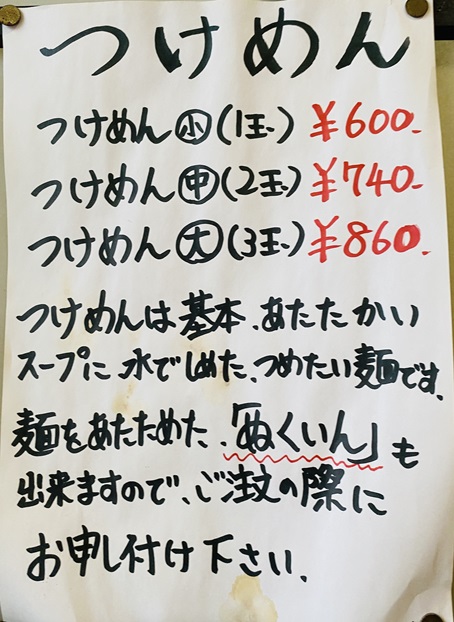 つけめん
つけめん㊙小(1玉) ¥600-
つけめん㊥(2玉) ¥740-
つけめん大(3玉) ¥860.
つけめんは基本、あたたかい
スープに水でしめた、つめたい麺です。
麺をあたためた、「ぬくいん」も
出来ますので、ご注文の際に
お申し付け下さい。